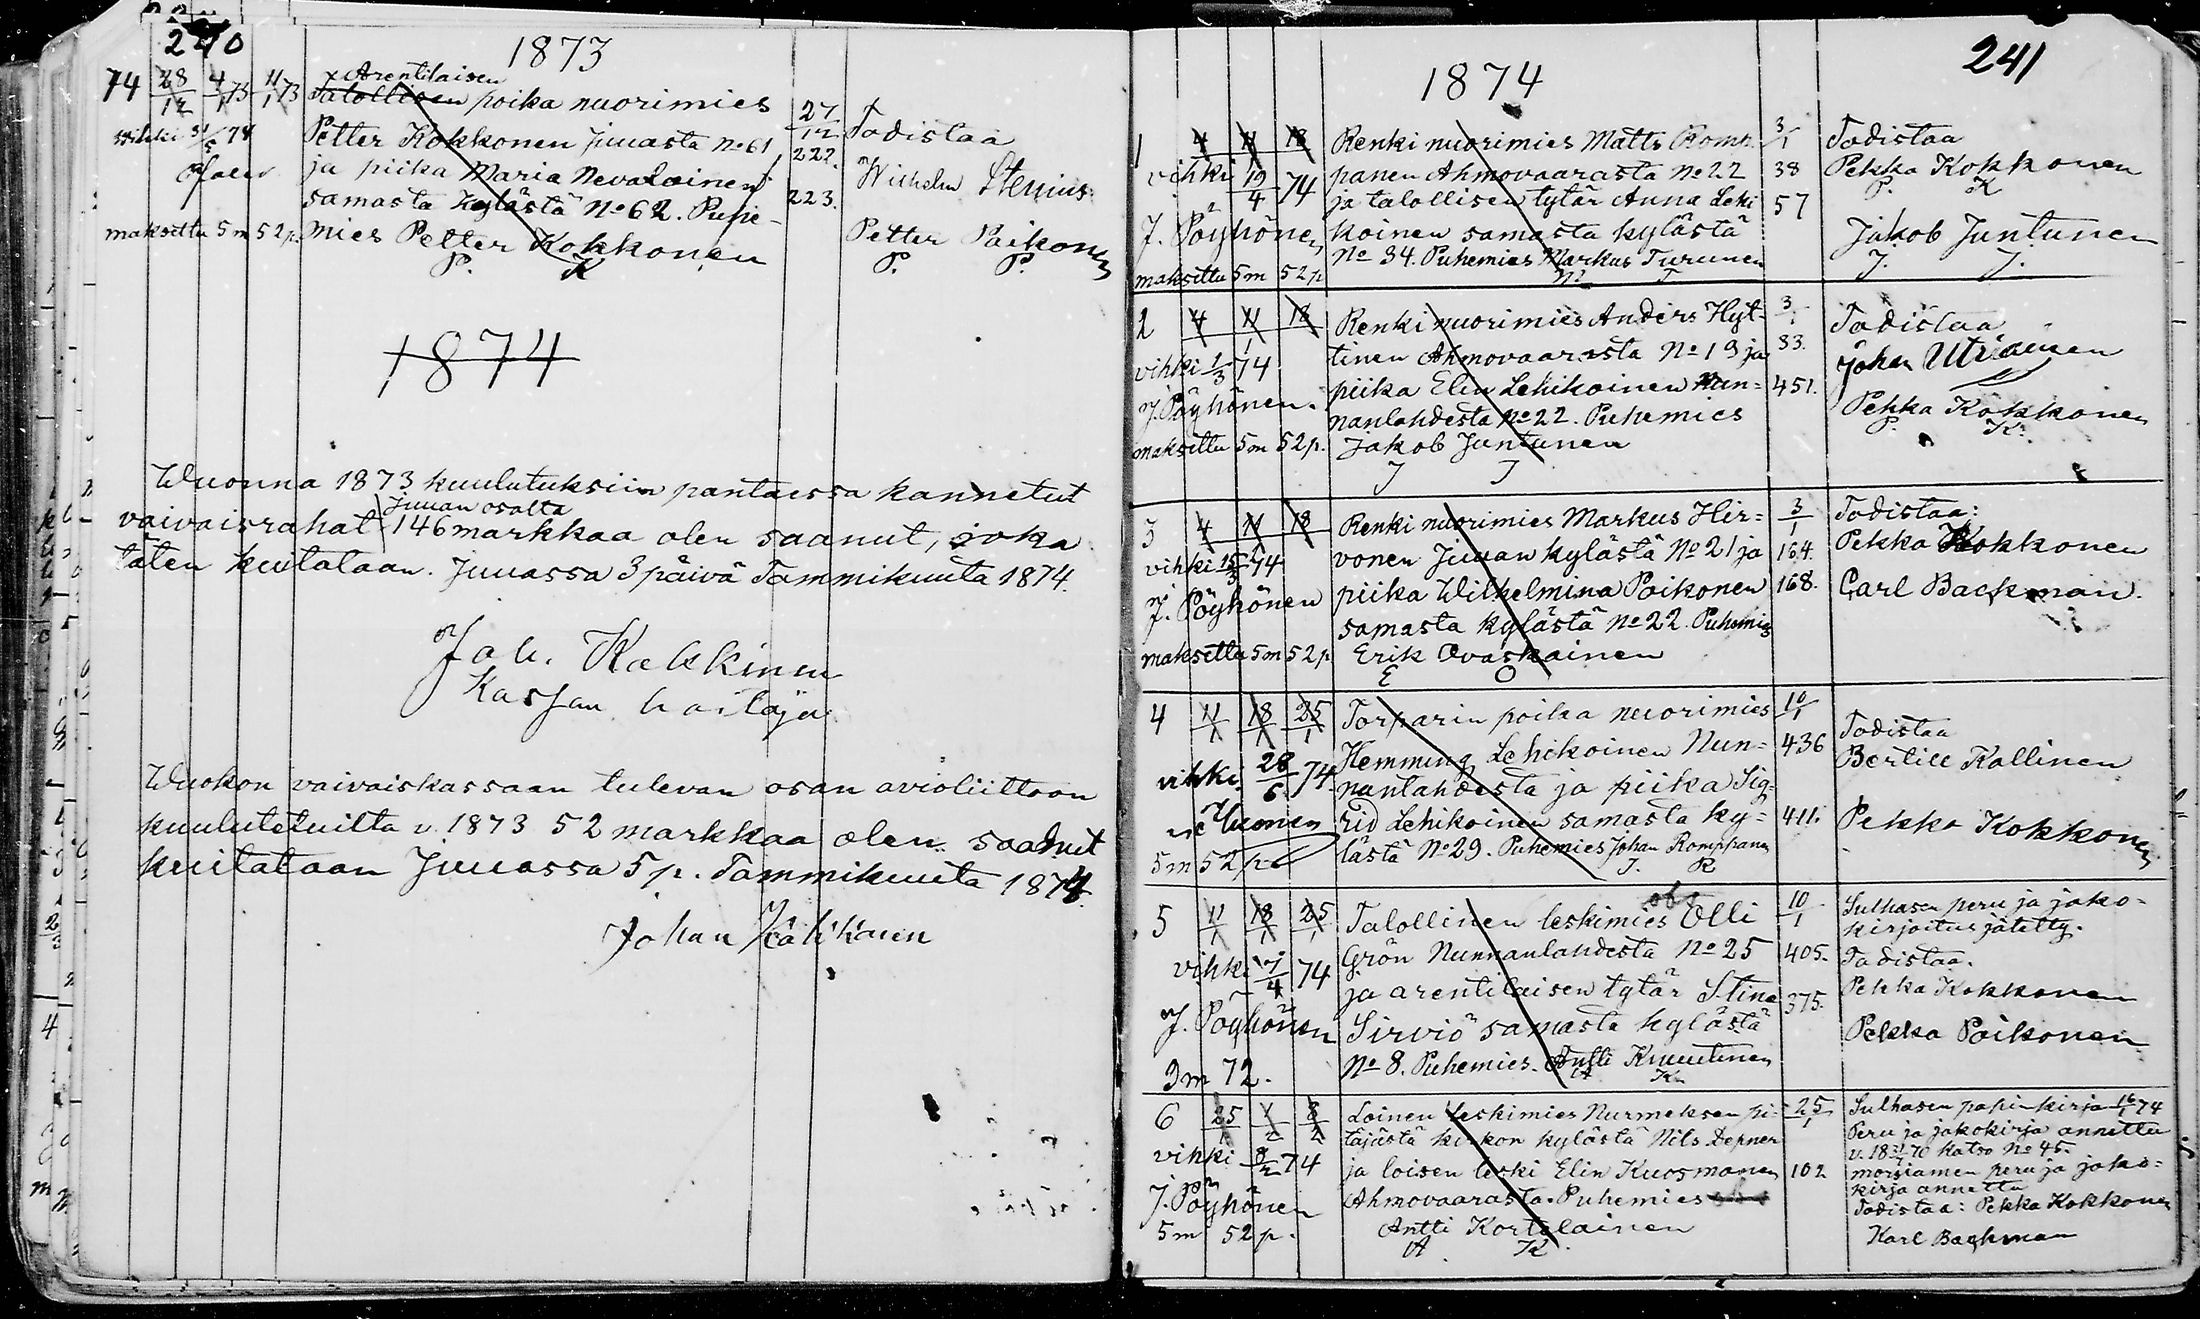 240
1873
74 28/12 4/1 73 11/1 73 Arentilaisen
Talollisen poika nuorimies 27/12 Todistaa
vihki 31/5 74 Petter Kokkonen Juuasta No 61 222. Wilhelm Stenius.
ja piika Maria Nevalainen 223.
samasta Kylästä No 62. Puhe-
maksettu 5 m 52 p. mies Petter Kokkonen Petter Paikonen
P. K P. P.
1874
Wuonna 1873 kuulutuksiin pantaessa kannetut
Juuan osalta
vaivaisrahat 146 markkaa olen saanut, joka
täten kuitataan. Juuassa 3 päivä Tammikuuta 1874.
Joh.
Kassan hoitaja
Wuokon vaivaiskassaan tulevan osan avioliittoon
kuulutetuilta v. 1873 52 markkaa olen saanut
kuitataan Juuassa 5 p. Tammikuuta 1874
Johan
241
1874
1 4 11 18 Renki nuorimies Matts Romp- 3/1 Todistaa
vihki 19/4 74 panen Ahmovaarasta No 22 38 Pekka Kokkonen
ja talollisen tytär Anna Lehi 57 P. K
J. Pöyhönen koinen samasta kylästä Jakob Juntunen
maksettu 5 m 52 p No 34. Puhemies Markus Turunen J. J.
M T.
2 4 11 18 Renki nuorimies Anders Hyt- 3/1 Todistaa
vihki 1/3 74 tinen Ahmovaarasta No 19 ja 33. Johan Utriainen
J. Pöyhönen. piika Elin Lehikoinen Nun= 451. Pekka Kokkonen
nanlahdesta No 22. Puhemies P. K.
maksettu 5 m 52 p. Jakob Juntunen
J J
3 4 11 18 Renki nuorimies Markus Hir= 3/1 Todistaa:
vihki 15/3 74 vonen Juuan kylästä No 21 ja 164. Pekka Kokkonen
J. Pöyhönen piika Wilhelmina Paikonen 168. Carl Backman.
samasta kylästä No 22. Puhemies
maksettu 5 m 52 p Erik Ovaskainen
E O
4 11/1 18/1 25/1 Torparin poika nuorimies 10/1 Todistaa
Hemming Lehikoinen Nun= 436 Bertill Kallinen
vihki 28/6 74 nanlahdesta ja piika Sig=
rid Lehikoinen samasta ky= 411. Pekka Kokkonen
5 m 52 p lästä No 29. Puhemies Johan Romppanen
J. R
5 11/1 18/1 25/1 Talollinen leskimies Olli 10/1 Sulhasen peru ja jako-
obs kirjoitus jätetty.
vihki 7/4 74 Grön Nunnanlahdesta No 25 405. Todistaa.
ja arentilaisen tytär Stina 375. Pekka Kokkonen
J. Pöyhönen Sirviö samasta kylästä Pekka Paikonen
9 m 72. No 8. Puhemies Antti Kuuutinen
A K
6 25/1 1/2 8/2 Loinen leskimies Nurmeksen pi- 25/1 Sulhasen papinkirja 16/1 74
täjästä kirkon kylästä Nils Depner Peru ja jakokirja annettu
vihki 8/2 74 ja loisen leski Elin Kuosmanen 102 v. 18 70 katso No 45.
morsiamen peru ja jako=
J. Pöyhönen Ahmovaarasta. Puhemies kirja annettu
5 m 52 p. Antti Kortelainen Todistaa: Pekka Kokkonen
A. K. Karl Backman